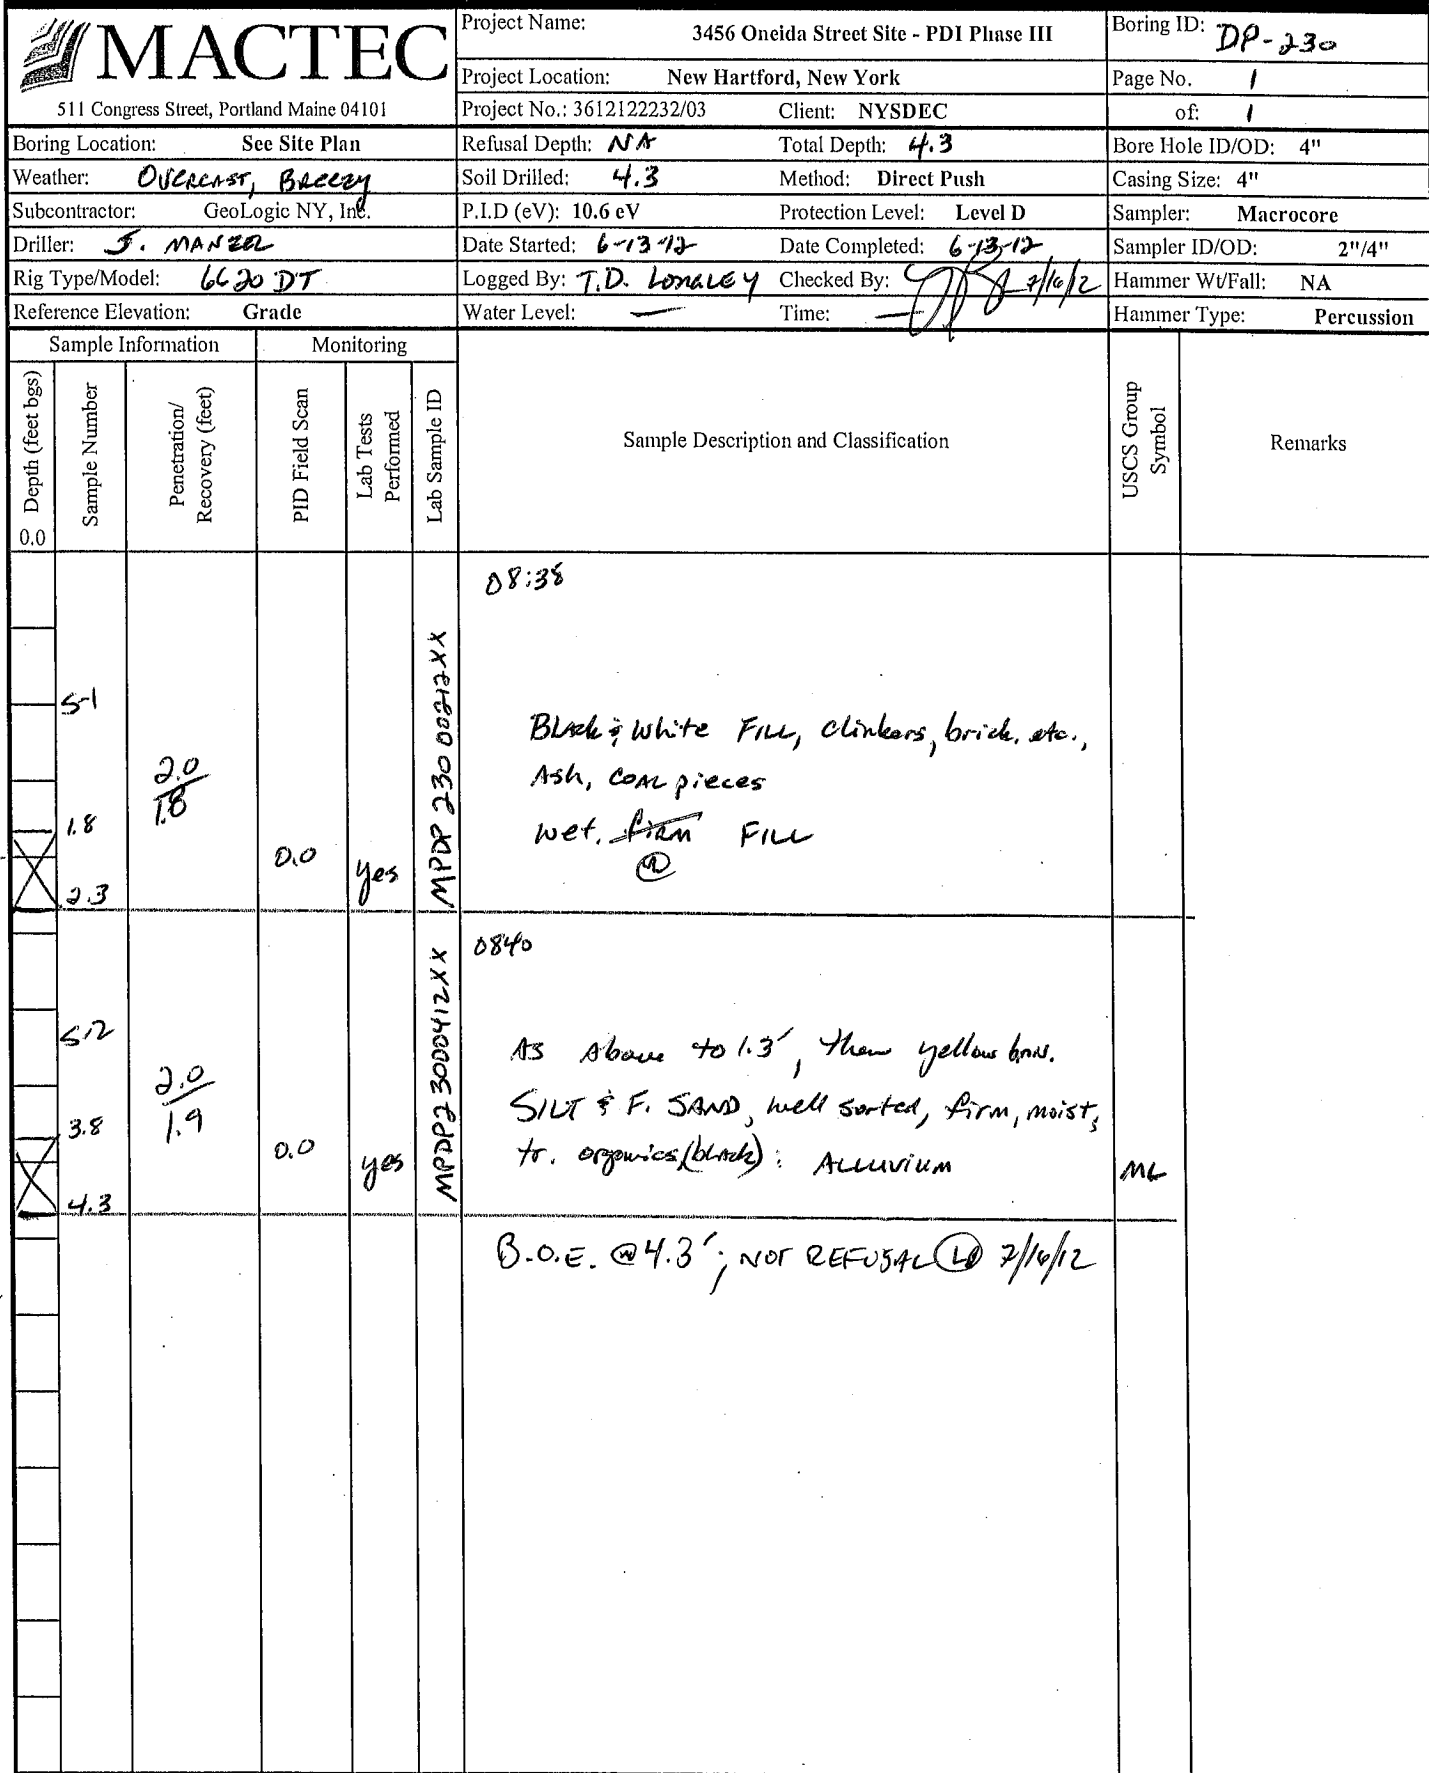 MACTEC
511 Congress Street, Portland Maine 04101
Project Name: 3456 Oneida Street Site - PDI Phase III
Boring ID: DP-230
Project Location: New Hartford, New York
Page No. 1
Project No.: 3612122232/03 Client: NYSDEC
of: 1
Boring Location: See Site Plan
Refusal Depth: NA Total Depth: 4.3
Bore Hole ID/OD: 4"
Weather: OVERCAST, BREEZY
Soil Drilled: 4.3 Method: Direct Push
Casing Size: 4"
Subcontractor: GeoLogic NY, Inc.
P.I.D (eV): 10.6 eV Protection Level: Level D
Sampler: Macrocore
Driller: J. MANZEL
Date Started: 6-13-12 Date Completed: 6-13-12
Sampler ID/OD: 2"/4"
Rig Type/Model: 6620 DT
Logged By: T.D. LONGLEY Checked By: 7/16/12
Hammer Wt/Fall: NA
Reference Elevation: Grade
Water Level: — Time: —
Hammer Type: Percussion
Sample Information Monitoring
Depth (feet bgs)
0.0
Sample Number
Penetration/
Recovery (feet)
PID Field Scan
Lab Tests
Performed
Lab Sample ID
Sample Description and Classification
USCS Group
Symbol
Remarks
08:38
S-1
2.0
1.8
1.8
2.3
0.0
yes
Black & White FILL, clinkers, brick, etc.,
Ash, COAL pieces
wet, firm FILL
0840
S-2
2.0
1.9
3.8
4.3
0.0
yes
As Above to 1.3', then yellow brn.
SILT & F. SAND, well sorted, firm, moist,
tr. organics (black): ALLUVIUM
ML
B.O.E. @ 4.3'; NOT REFUSAL 7/16/12